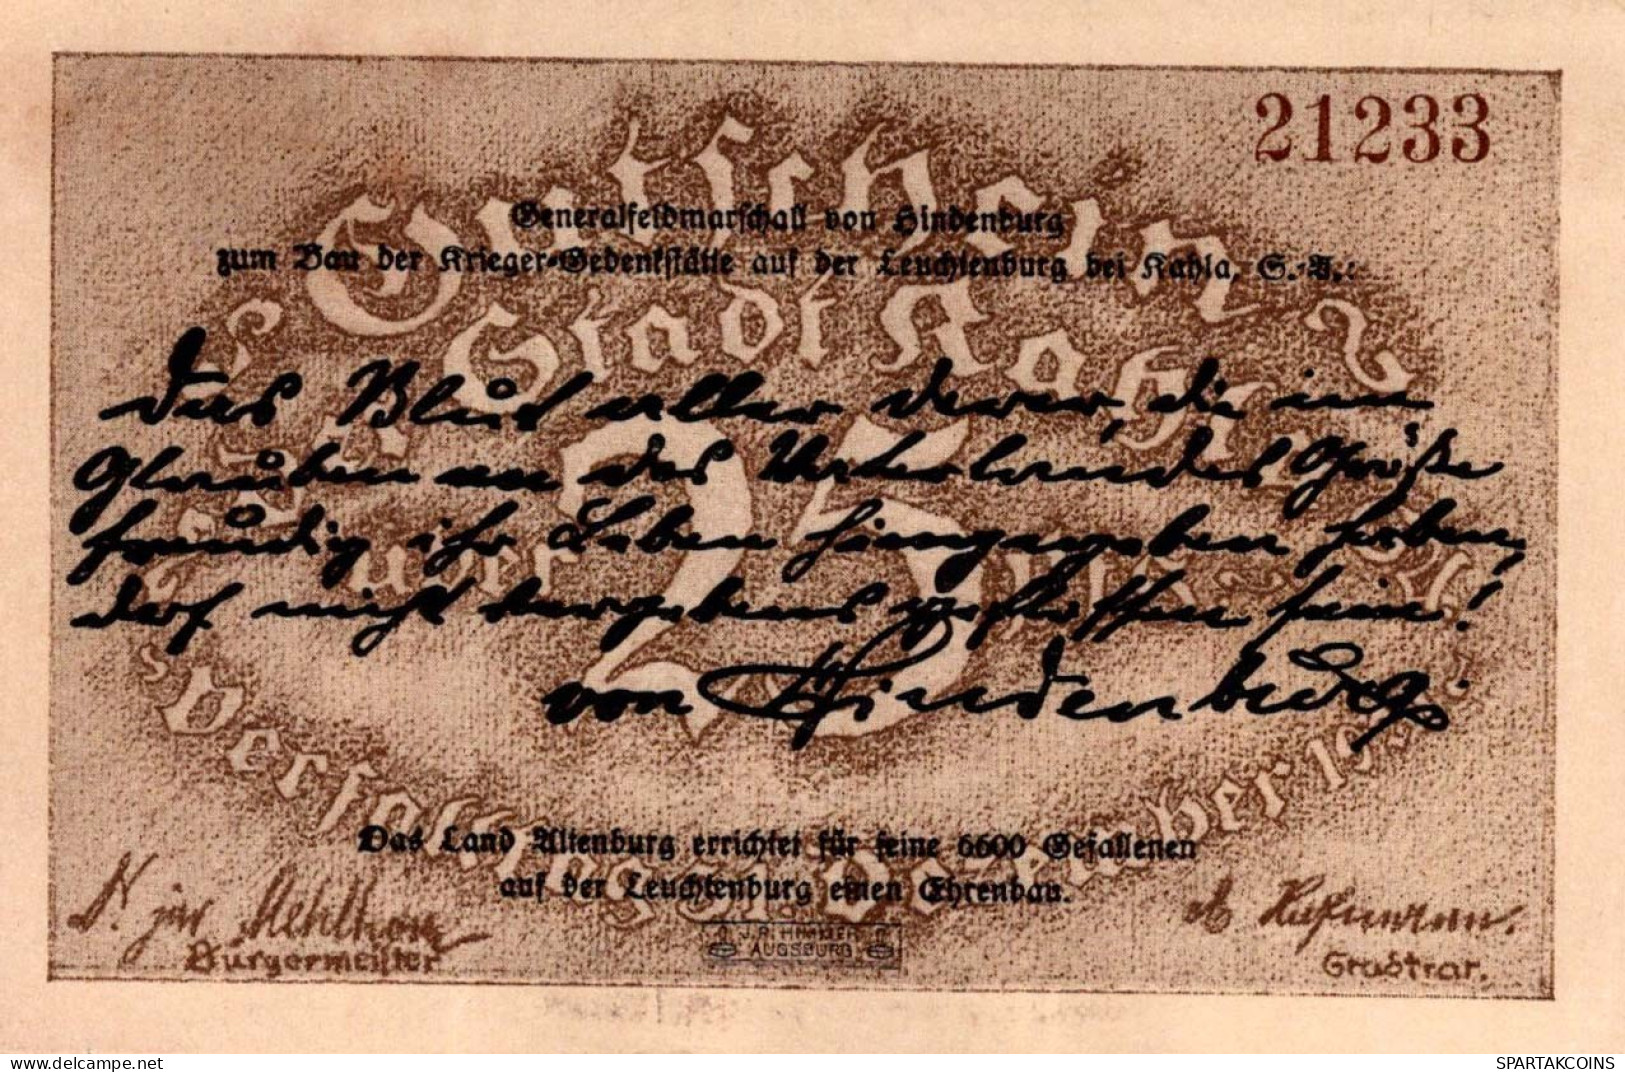 21233
Gutschein
Generalfeldmarschall von Hindenburg
zum Bau der Krieger-Gedenkstätte auf der Leuchtenburg bei Kahla, S.-A.:
Stadt Kahla
Das Blut aller derer, die im
Glauben an des Vaterlandes Größe
freudig ihr Leben hingegeben haben,
darf nicht vergebens geflossen sein!
über 25
von Hindenburg.
Verfalltag: Dezember 19
Das Land Altenburg errichtet für seine 6600 Gefallenen
auf der Leuchtenburg einen Ehrenbau.
Dr jur
Bürgermeister
J.P. HIMMER
AUGSBURG
Stadtrat.
www.delcampe.net
SPARTAKCOINS